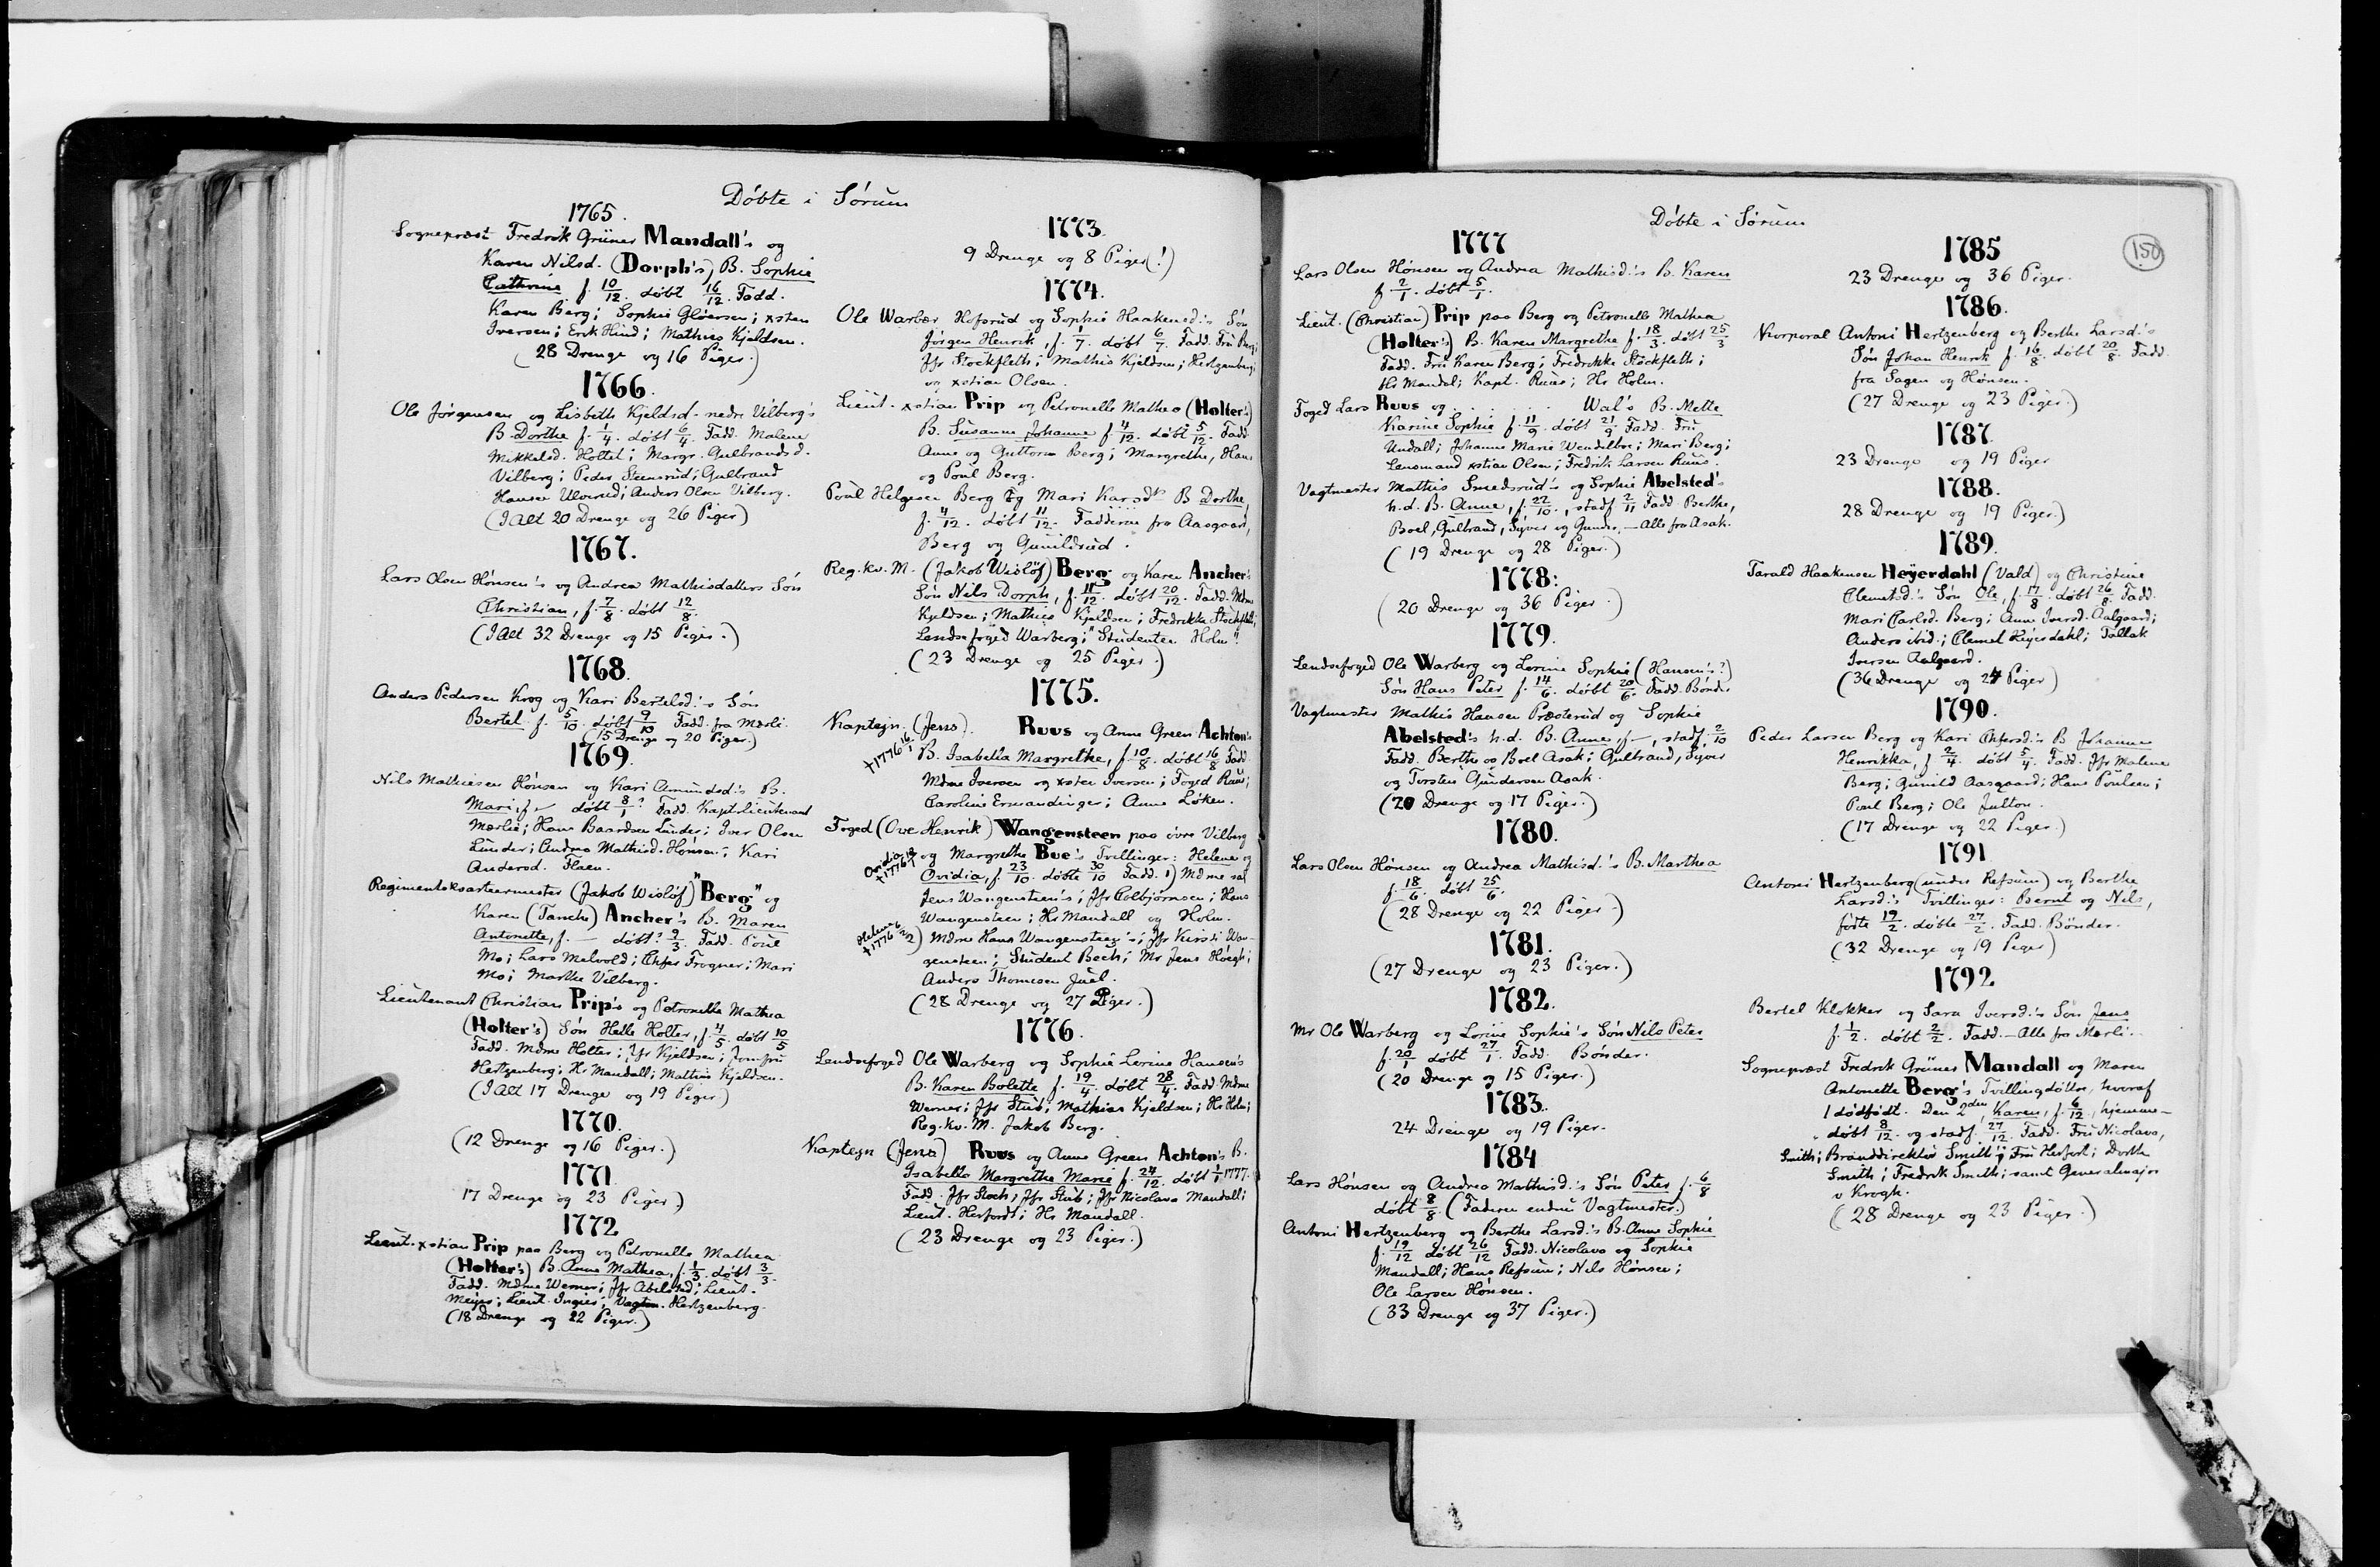 Döbte i Sörum
1765.
Sognepræst Fredrik Grüner Mandall's og
Karen Nilsd. (Dorph's) B. Sophie
Cathrine f. 10/12. döbt 16/12. Fadd.
Karen Berg; Sophie Glöersen; xsten
Iversen; Erik Hind; Mathies Kjeldsen.
(28 Drenge og 16 Piger.)
1766.
Ole Jörgensen og Lisbeth Kjeldsd. nedre Vilberg's
B. Dorthe f. 1/4. döbt 6/4. Fadd. Malene
Mikkelsd. Holtet; Margr. Gulbrandsd.
Vilberg; Peder Steensrud; Gulbrand
Hansen Ulversud; Anders Olsen Vilberg.
(I Alt 20 Drenge og 26 Piger)
1767.
Lars Olsen Hönsen's og Andrea Mathisdatters Sön
Christian, f. 7/8. döbt 12/8.
(I Alt 32 Drenge og 15 Piger.)
1768.
Anders Pedersen Krog og Kari Bertelsd.'s Sön
Bertel f. 5/10. döbt 9/10 Fadd. fra Mærli.
(15 Drenge og 20 Piger.)
1769.
Nils Mathiesen Hönsen og Kari Amundsd.'s B.
Mari, f. — döbt 8/1? Fadd. Kaptlieutenant
Mærlie; Hans Baardsen Linder; Iver Olsen
Lunder; Andrea Mathisd. Hönsen; Kari
Andersd. Flaen.
Regimentskvarteermester (Jakob Wislöf) "Berg" og
Karen (Tanche) Ancher's B. Maren
Antonette, f. — döbt? 9/3. Fadd. Poul
Mo; Lars Melvold; Chfer Frogner; Mari
Mo; Marthe Vilberg.
Lieutenant Christian Prip's og Petronelle Mathea
(Holter's) Sön Helle Holter, f. 4/5. döbt 10/5
Fadd. Mdme Holter; Jfr Kjeldsen; Jomfru
Hertzenberg; Hr Mandall; Mathias Kjeldsen.
(I Alt 17 Drenge og 19 Piger)
1770.
(12 Drenge og 16 Piger.)
1771.
17 Drenge og 23 Piger.)
1772
Lieut. xstian Prip paa Berg og Petronelle Mathea
(Holter's) B. Anne Mathea, f. 1/3. döbt 3/3.
Fadd. Mdme Werner; Jfr Abelsted; Lieut.
Meyer; Lieut. Ingier; Vagtm. Hertzenberg.
(18 Drenge og 22 Piger.)
1773.
9 Drenge og 8 Piger(!)
1774.
Ole Warber Hofsrud og Sophie Haakensd.'s Sön
Jörgen Henrik, f. 1/7. döbt 6/7. Fadd. Fru Berg;
Jfr Stockfleth; Mathis Kjeldsen; Hertzenberg;
og xstian Olsen.
Lieut. xstian Prip og Petronelle Mathea (Holter's)
B. Susanne Johanne f. 4/12. döbt 5/12. Fadd.
Anne og Guttorm Berg; Margrethe, Hans
og Poul Berg.
Poul Helgesen Berg og Mari Karsd's B Dorthe,
f. 4/12. döbt 11/12. Fadderne fra Aasgaard,
Berg og Gunildrud.
Reg.kv.M. (Jakob Wislöf) Berg og Karen Ancher's
Sön Nils Dorph, f. 11/12. döbt 20/12. Fadd. Mdme
Kjeldsen; Mathies Kjeldsen; Fredrikke Stockfleth;
Lendsfoged Warberg; "Studenten Holm".
(23 Drenge og 25 Piger.)
1775.
Kaptejn (Jens) Ruus og Anne Green Achton's
†1776 16/1 B. Isabella Margrethe, f. 10/8. döbt 16/8 Fadd.
Mdme Iversen og xsten Iversen; Foged Ruus;
Caroline Ermandinger; Anne Löken.
Foged (Ove Henrik) Wangensteen paa övre Vilberg
og Margrethe Bue's Tvillinger: Helene og
Ovidia †1776
Ovidia, f. 23/10. döbte 30/10 Fadd. 1) Mdme sal
Jens Wangensteen's; Jfr Colbjörnsen; Hans
Wangensteen; Hr Mandall og Holm.
Helene †1776 2) Mdme Hans Wangensteen's; Jfr Kirsti Wan-
gensteen; Student Bech; Mr Jens Höegh;
Anders Thomesen Juel.
(28 Drenge og 27 Piger.)
1776.
Lendsfoged Ole Warberg og Sophie Lorine Hansen's
B. Karen Bolette f. 19/4. döbt 28/4. Fadd. Mdme
Werner; Jfr Stub; Mathias Kjeldsen; Hr Holm;
Reg.kv.M. Jakob Berg.
Kaptejn (Jens) Ruus og Anne Green Achton's B.
Isabella Margrethe Marie f. 24/12. döbt 1/1 1777.
Fadd. Jfr Stoch; Jfr Stub; Jfr Nicolava Mandall;
Lieut. Herfordt; Hr Mandall.
(23 Drenge og 23 Piger.)
Döbte i Sörum
150
1777
Lars Olsen Hönsen og Andrea Mathisd.'s B. Karen
f 2/1. döbt 5/1.
Lieut. (Christian) Prip paa Berg og Petronelle Mathea
(Holter's) B. Karen Margrethe f. 18/3. döbt 25/3
Fadd. Fru Karen Berg; Fredrikke Stockfleth;
Hr Mandal; Kapt. Ruus; Hr Holm.
Foged Lars Ruus og . . . . . . Wal's B. Mette
Karine Sophie f. 11/9. döbt 21/9 Fadd. Fru
Undall; Johanne Marie Wendelboe; Mari Berg;
Lensmand xstian Olsen; Fredrik Larsen Ruus.
Vagtmester Mathis Smedsrud's og Sophie Abelsted's
h.d. B. Anne, f. 22/10., stadf 2/11 Fadd. Berthe,
Boel, Gulbrand, Syver og Gunder. — Alle fra Asak.
(19 Drenge og 28 Piger.)
1778:
(20 Drenge og 36 Piger.)
1779.
Lendsfoged Ole Warberg og Lorine Sophie (Hansen's?)
Sön Hans Peter f. 14/6. döbt 20/6. Fadd. Bönder
Vagtmester Mathis Hansen Præsterud og Sophie
Abelsted's h.d. B. Anne, f —, stadf. 2/10
Fadd. Berthe og Boel Asak; Gulbrand, Syver
og Torsten Gundersen Asak.
(20 Drenge og 17 Piger.)
1780.
Lars Olsen Hönsen og Andrea Mathisd.'s B. Marthea
f. 18/6. döbt 25/6.
(28 Drenge og 22 Piger.)
1781.
(27 Drenge og 23 Piger.)
1782.
Mr Ole Warberg og Lorine Sophie's Sön Nils Peter
f. 20/1 döbt 27/1. Fadd. Bönder.
(20 Drenge og 15 Piger.)
1783.
24 Drenge og 19 Piger.
1784
Lars Hönsen og Andrea Mathisd.'s Sön Peter f. 6/8
döbt 8/8 (Faderen endnu Vagtmester.)
Antoni Hertzenberg og Berthe Larsd.'s B. Anne Sophie
f. 19/12 döbt 26/12 Fadd. Nicolava og Sophie
Mandall; Hans Refsum; Nils Hönsen;
Ole Larsen Hönsen.
(33 Drenge og 37 Piger.)
1785
23 Drenge og 36 Piger.
1786.
Korporal Antoni Hertzenberg og Berthe Larsd.'s
Sön Johan Henrik f. 16/8. döbt 20/8. Fadd.
fra Sagen og Hönsen.
(27 Drenge og 23 Piger.)
1787.
23 Drenge og 19 Piger
1788.
28 Drenge og 19 Piger.)
1789.
Tarald Haakensen Heyerdahl (Vald) og Christine
Clemetsd.'s Sön Ole, f. 17/8. döbt 26/8. Fadd.
Mari Carlsd. Berg; Anne Iversd. Aalgaard;
Anders ibid.; Clemet Heyerdahl; Tollak
Iversen Aalgaard.
(36 Drenge og 24 Piger)
1790.
Peder Larsen Berg og Kari Chfersd.'s B Johanne
Henrikka, f 2/4. döbt 5/4. Fadd. Jfr Malene
Berg; Gunild Aasgaard; Hans Poulsen;
Poul Berg; Ole Julton.
(17 Drenge og 22 Piger.)
1791
Antoni Hertzenberg (under Refsum) og Berthe
Larsd.'s Tvillinger: Bernt og Nils,
födte 19/2. döbte 27/2. Fadd. Bönder.
(32 Drenge og 19 Piger)
1792.
Bertel Klokker og Sara Iversd.'s Sön Jens
f. 1/2. döbt 2/2. Fadd. — Alle fra Mærli.
Sognepræst Fredrik Grüner Mandall og Maren
Antonette Berg's Tvillingdöttre, hvoraf
1 dödfödt. Den 2den, Karen, f. 6/12., hjemme-
döbt 8/12. og stadf. 27/12. Fadd. Fru Nicolava,
Smith; Branddirektör Smith; Fru Herfort; Dorthe
Smith; Fredrik Smith; samt Generalmajor
v Krogh.
(28 Drenge og 23 Piger.)